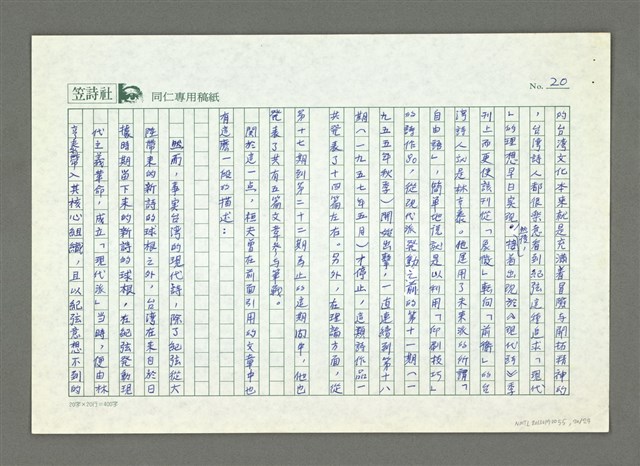 笠詩社 同仁專用稿紙
No. 20
的台湾文化本來就是充滿著冒險与開拓精神的
，台灣詩人都很樂意看到紀弦這種追求「現代
」的理想早日实現。然後，接着出現於《現代詩》季
刊上而更使該刊從「晨傚」轉向「前衛」的台
湾詩人就是林亨泰。他是用了未來派的所謂「
自由語」，簡單地說就是以利用「印刷技巧」
的詩作品，從現代派発動之前的第十一期（一
九五五年秋季）開始出擊，一直連續到第十八
期（一九五七年五月）才停止，這類詩作品一
共発表了十四篇左右。另外，在理論方面，從
第十七期到第二十二期為止的這期间中，他也
発表了共有五篇文章参与筆戦。
関於這一点，桓夫曾在前面引用的文章中也
有這麼一段的描述：
然而，事实台湾的現代詩，除了紀弦從大
陸帶來的新詩的球根之外，台湾在來自於日
據時期留下來的新詩的球根，在紀弦発動現
代主義革命，成立「現代派」当時，便由林
亨泰帶入其核心組織，且以紀弦意想不到的
20字×20行＝400字